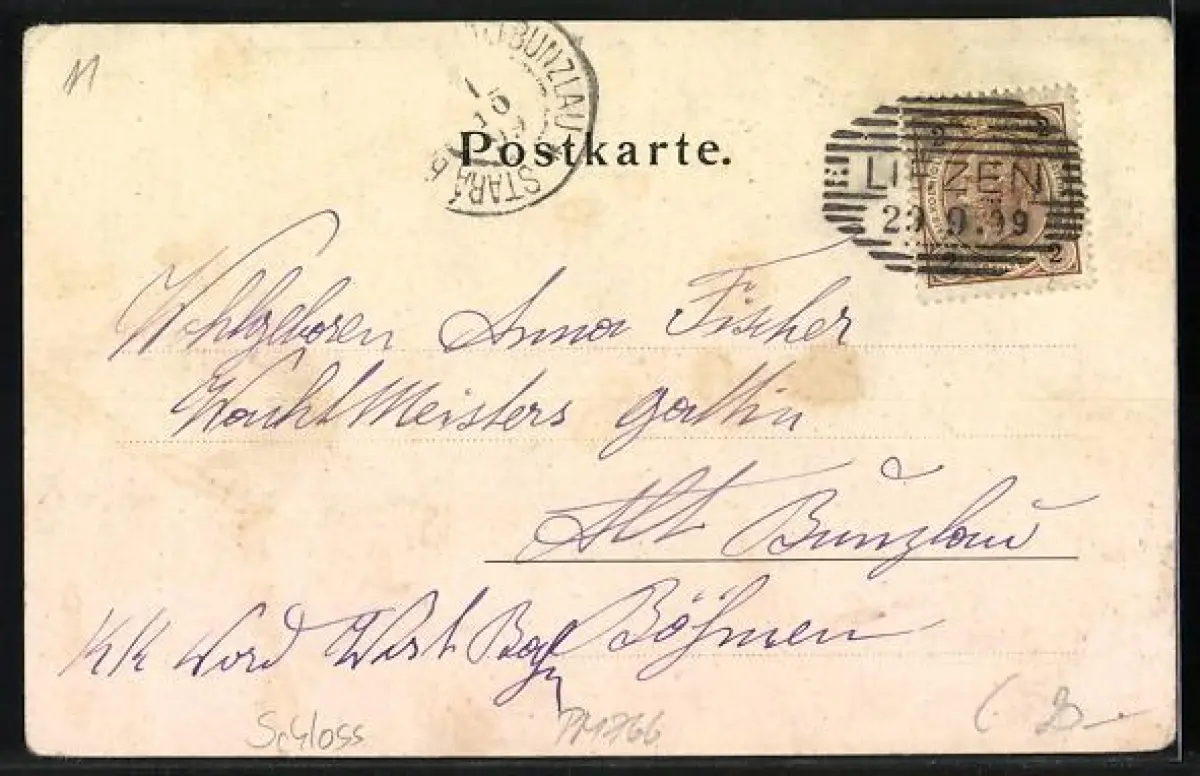 M
BUNZLAU
STARÁ B
Postkarte.
LIEZEN
29.9.99
2 2
2 2
Wohlgeboren Anna Fischer
WachtMeisters gattin
Alt Bunzlau
KK Nord West Bahn Böhmen
Schloss